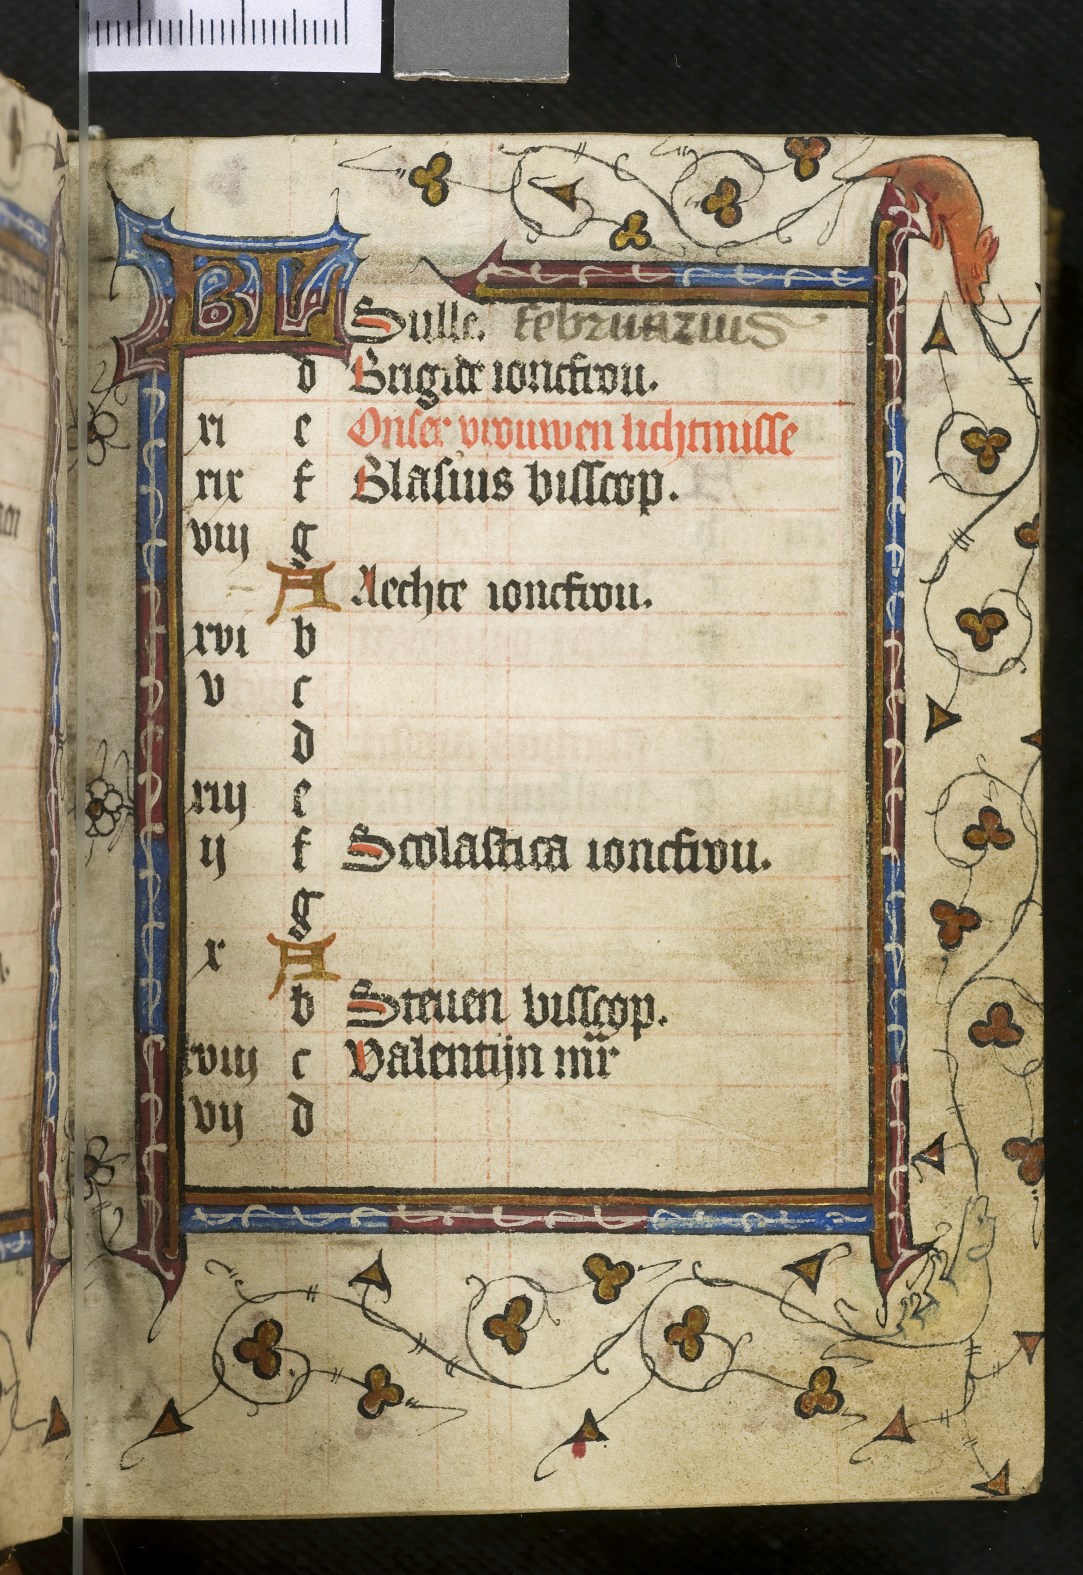 KL Sulle. februarius
d Brigide ioncfrou.
xi e Onser vrouwen lichtmisse
xix f Blasius bisscop.
viij g
A Aechte ioncfrou.
xvi b
v c
d
xiij e
ij f Scolastica ioncfrou.
g
x A
b Steuen bisscop.
xviij c Valentijn mr
vij d